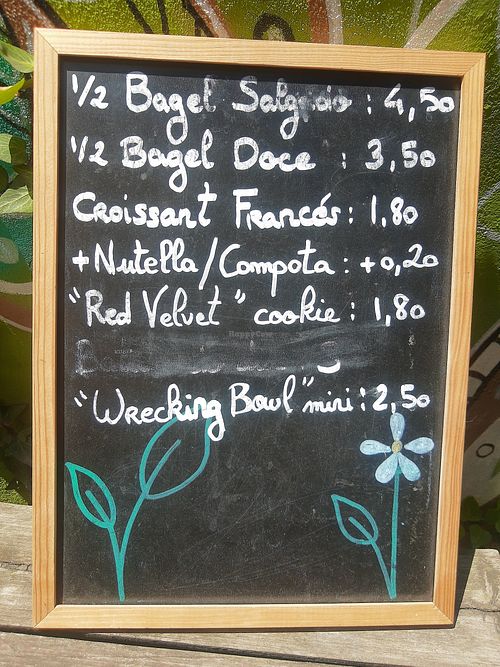 1/2 Bagel Salgado : 4,50
1/2 Bagel Doce : 3,50
Croissant Francés : 1,80
+ Nutella/Compota : +0,20
"Red Velvet" cookie : 1,80
"Wrecking Bowl" mini : 2,50